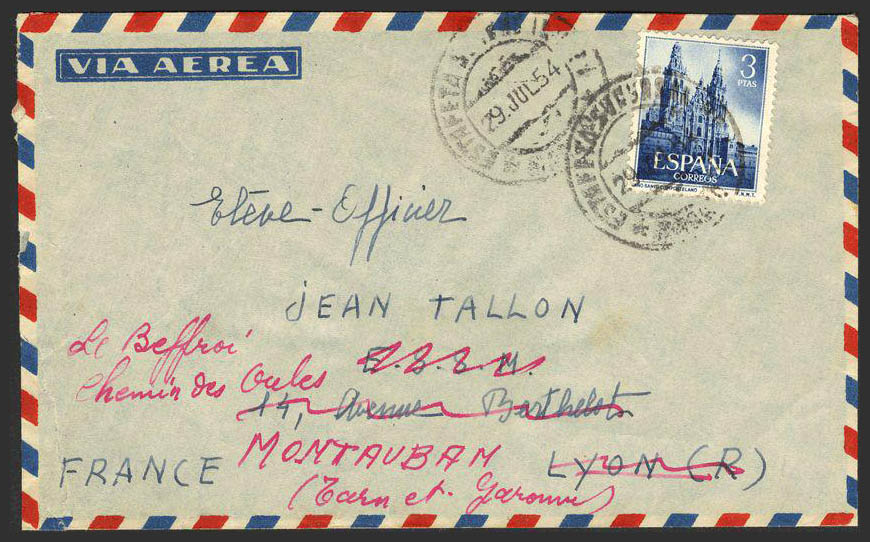 VIA AEREA
29. JUL. 54
3
PTAS
ESPAÑA
CORREOS
F.N.M.T.
ESTAFETA
29
Elève-Officier
JEAN TALLON
Le Beffroi
E.S.S.M.
Chemin des Oules
14, Avenue Berthelot
MONTAUBAN
LYON (R)
FRANCE
(Tarn et Garonne)